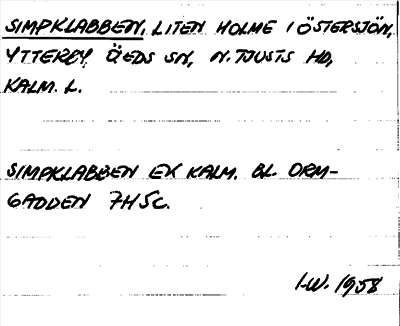 SIMPKLABBEN, LITEN HOLME I ÖSTERSJÖN,
YTTERBY, ÖEDS SN, N. TJUSTS HD,
KALM. L.
SIMPKLABBEN EK KALM. BL. ORM-
GADDEN 7H5c.
I-W. 1958